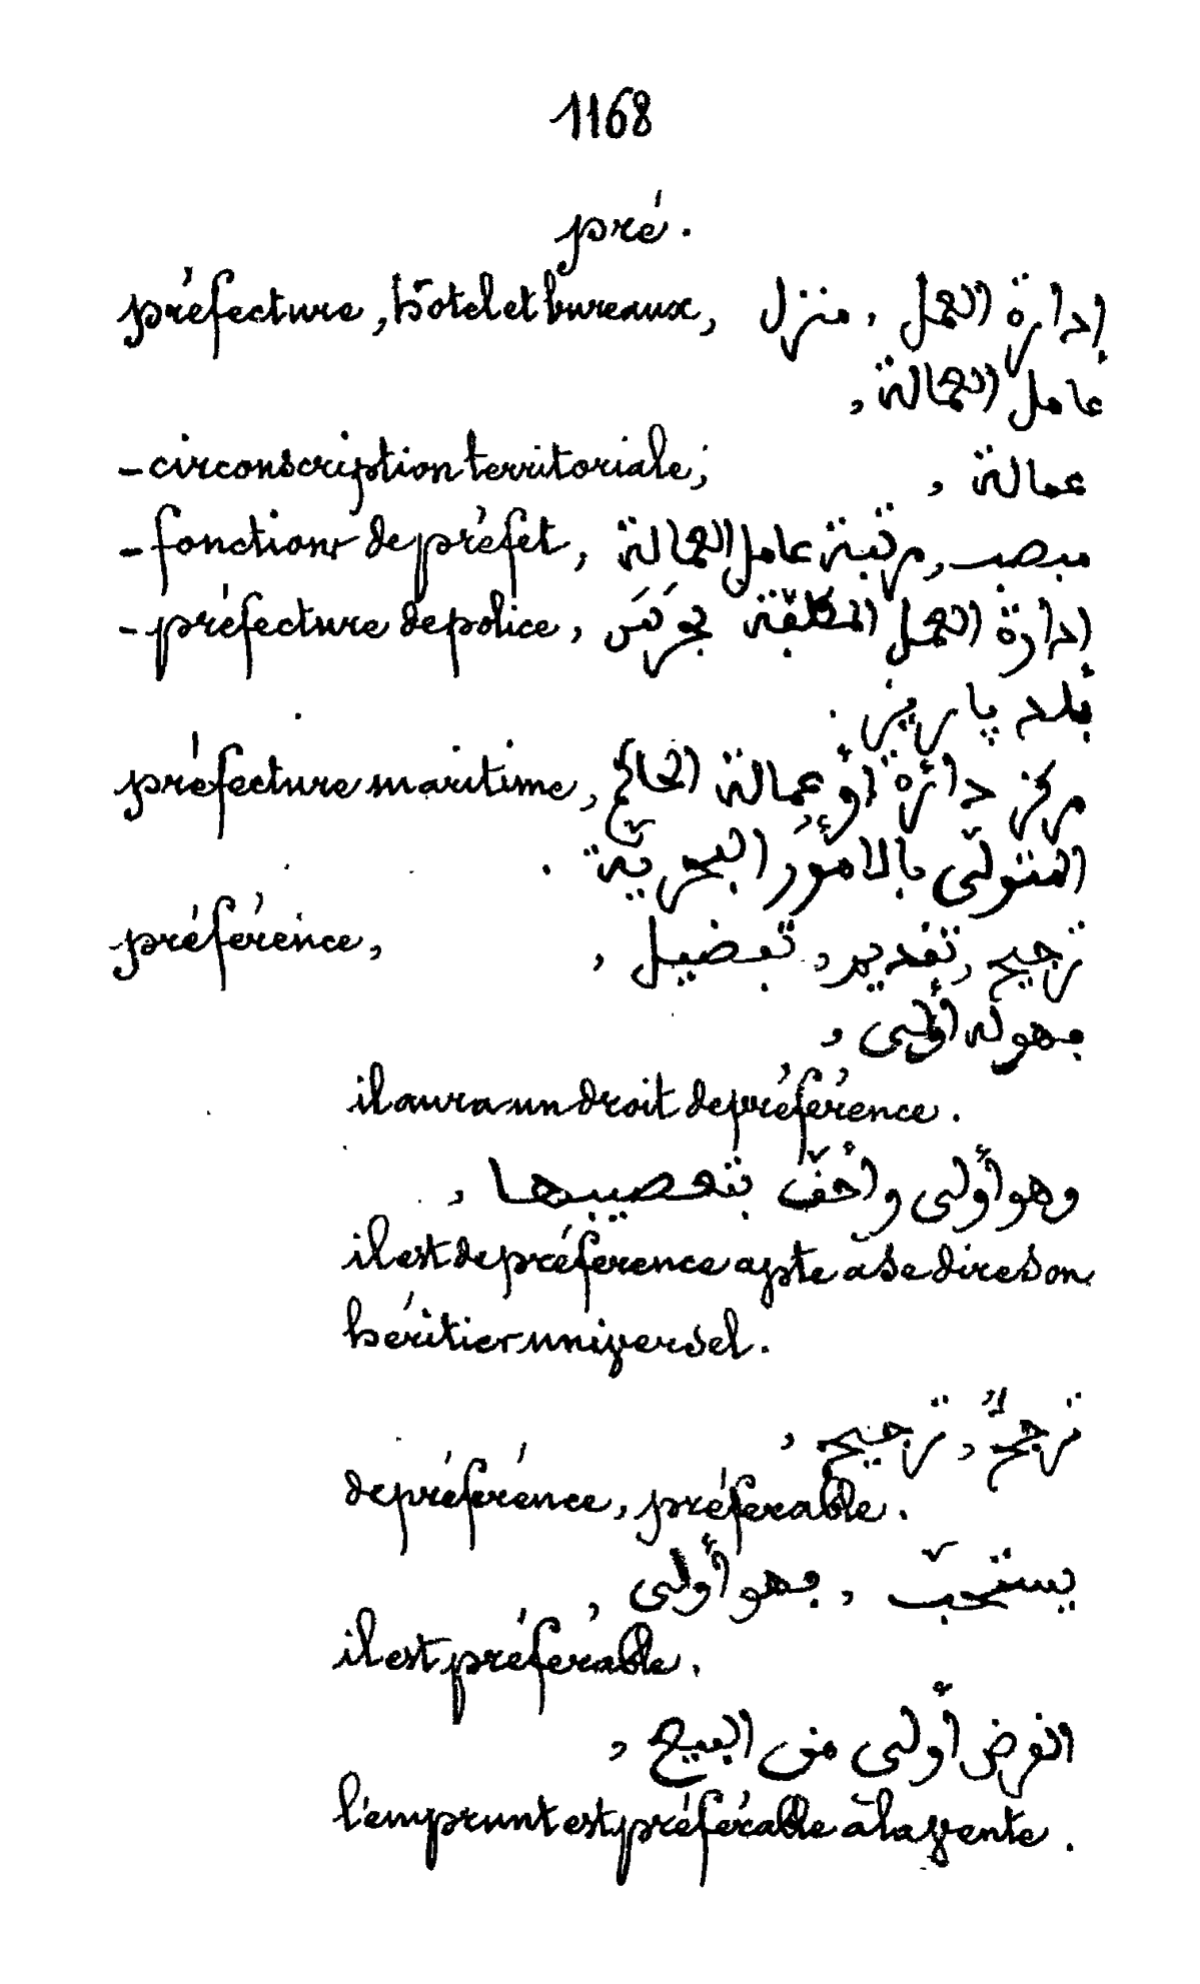 1168
pré.
préfecture, hôtel et bureaux, إدارة العمل، منزل
عامل العمالة,
- circonscription territoriale; عمالة,
- fonctions de préfet, منصب, مرتبة عامل العمالة
- préfecture de police, إدارة العمل المكلّفة بحرَس
بلد پاريز.
préfecture maritime, مركز دائرة أو عمالة الحاكم
المتولّى بالأمور البحريّة.
préférence, ترجيح, تقديم, تفضيل,
فهو له أولى,
il aura un droit de préférence.
وهو أولى وأحقّ بتعصيبها,
il est de préférence apte à se dire son
héritier universel.
ترجّح, ترجيح,
de préférence, préférable.
يستحبّ, فهو أولى,
il est préférable.
القرض أولى من البيع,
l'emprunt est préférable à la vente.